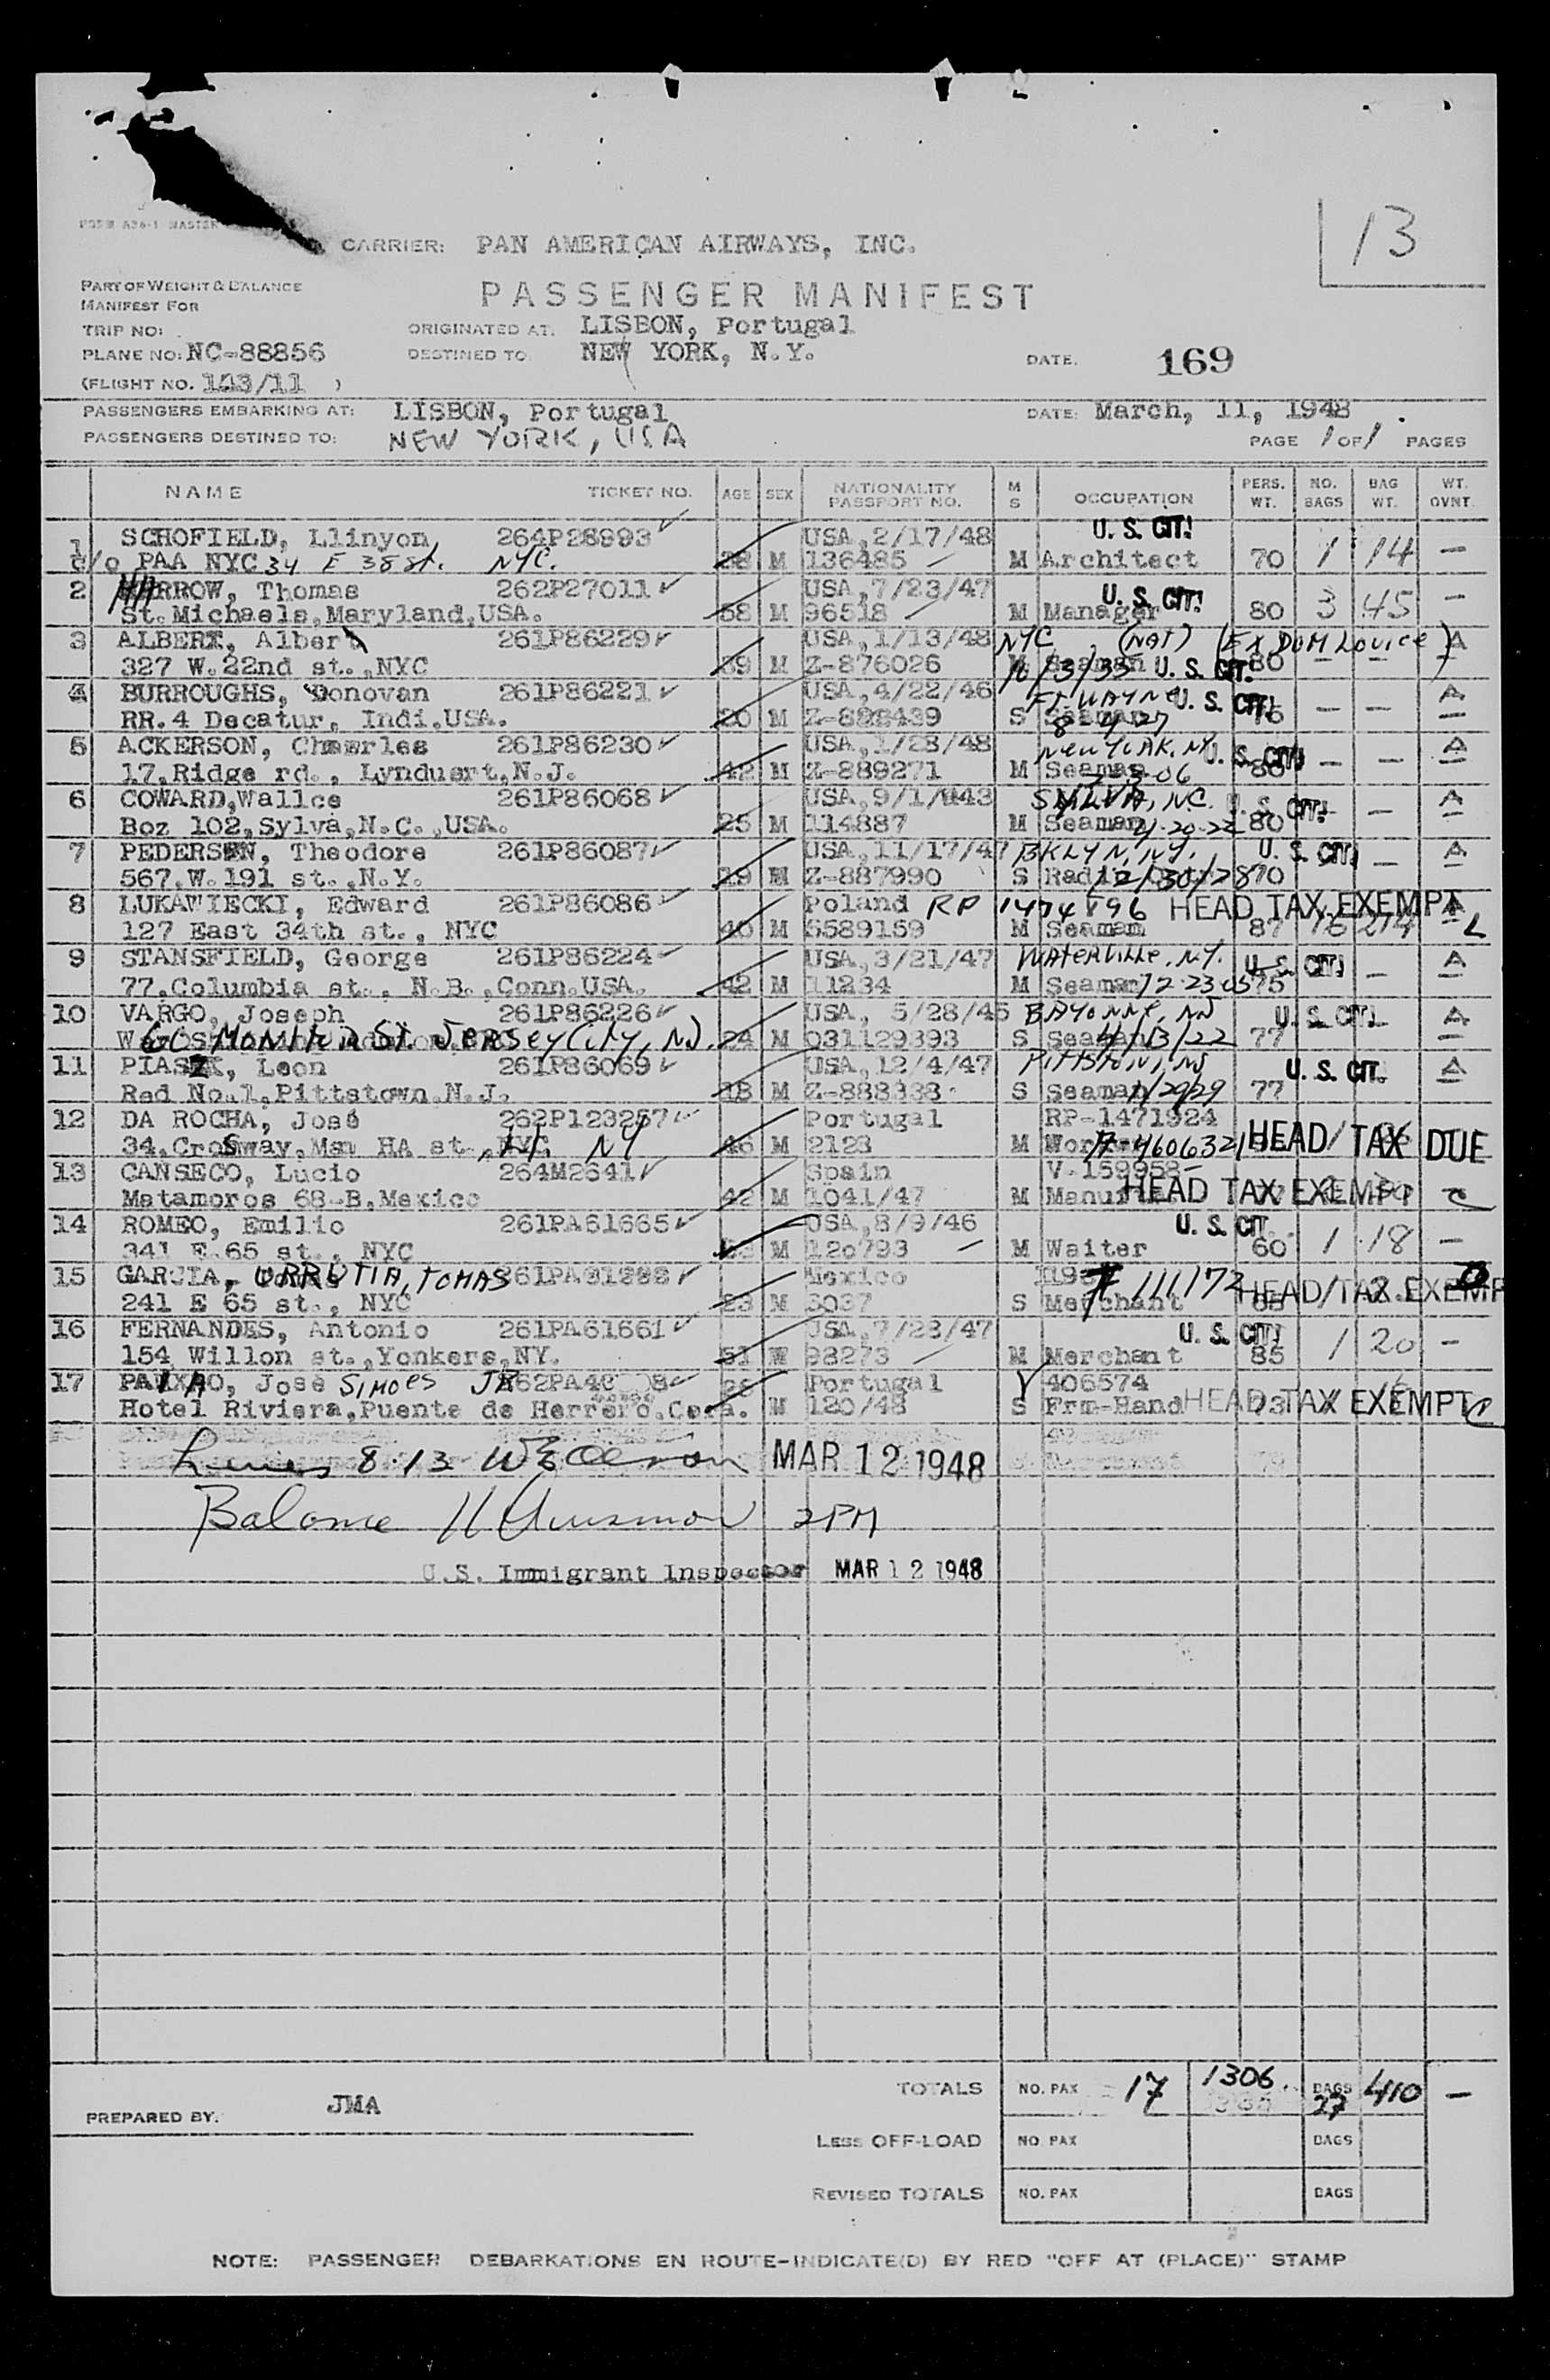 FORM 436-1 MASTER
13
CARRIER: PAN AMERICAN AIRWAYS, INC.
PART OF WEIGHT & BALANCE
MANIFEST FOR
PASSENGER MANIFEST
TRIP NO:
ORIGINATED AT: LISBON, Portugal
PLANE NO: NC-88856
DESTINED TO: NEW YORK, N.Y.
DATE: 169
(FLIGHT NO. 143/11 )
PASSENGERS EMBARKING AT: LISBON, Portugal
DATE: March, 11, 1948
PASSENGERS DESTINED TO: NEW YORK, USA
PAGE 1 OF 1 PAGES
NAME TICKET NO. AGE SEX NATIONALITY PASSPORT NO. M S OCCUPATION PERS. WT. NO. BAGS BAG WT. WT. OVNT.
1 SCHOFIELD, Llinyon, 264P28993 USA, 2/17/48 U. S. CIT.
c/o PAA NYC 34 E 38 st. NYC. 38 M 136485 M Architect 70 1 14 —
2 RROW, Thomas 262P27011 USA, 7/23/47 U. S. CIT.
St. Michaels, Maryland, USA. 58 M 96518 M Manager 80 3 45 —
3 ALBERT, Albert 261P86229 USA, 1/13/48 NYC (NAT) (EX DOM LOUICE) A
327 W. 22nd st., NYC 39 M Z-876026 M Seaman U. S. CIT. 80 — —
4 BURROUGHS, Donovan 261P86221 USA, 4/22/46 FT. WAYNE U. S. CIT. A
RR. 4 Decatur, Indi. USA. 20 M Z-888439 S Seaman 8-4-27 76 — —
5 ACKERSON, Charles 261P86230 USA, 1/28/48 NEW YORK, NY U. S. CIT. A
17, Ridge rd., Lynduart, N.J. 42 M Z-889271 M Seaman 80 — —
6 COWARD, Wallce 261P86068 USA, 9/1/943 SYLVA, NC. U. S. CIT. A
Boz 102, Sylva, N.C., USA. 25 M 114887 M Seaman 4-20-22 80 —
7 PEDERSEN, Theodore 261P86087 USA, 11/17/47 BKLYN, NY. U. S. CIT. A
567, W. 191 st., N.Y. 19 M Z-887990 S Radio 12/30/28 70 —
8 LUKAWIECKI, Edward 261P86086 Poland RP 1474896 HEAD TAX EXEMPT A
127 East 34th st., NYC 40 M 6589159 M Seaman 87 16 214 — L
9 STANSFIELD, George 261P86224 USA, 3/21/47 WATERVILLE, N.Y. U. S. CIT. A
77, Columbia st., N.B., Conn. USA. 42 M 11234 M Seaman 12-23-05 75 —
10 VARGO, Joseph 261P86226 USA, 5/28/45 BAYONNE, NJ U. S. CIT. A
MONITOR ST. JERSEY CITY, NJ. 24 M 031129393 S Seaman 4/13/22 77
11 PIASZK, Leon 261P86069 USA, 12/4/47 PITTSTOWN, NJ U. S. CIT. A
Red No. 1, Pittstown, N.J. 18 M Z-888338 S Seaman 77
12 DA ROCHA, José 262P123257 Portugal RP-1471924
34, Crosway, Man HA st., NYC NY 46 M 2123 M A-4606321 HEAD TAX DUE
13 CANSECO, Lucio 264M2641 Spain V-159958
Matamoros 68-B, Mexico 42 M 1041/47 M HEAD TAX EXEMPT C
14 ROMEO, Emilio 261PA61665 USA, 8/9/46 U. S. CIT.
341 E. 65 st., NYC M 120793 M Waiter 60 1 18 —
15 GARCIA, URRUTIA, TOMAS Mexico F 111172 HEAD TAX EXEMP
241 E 65 st., NYC 23 M 5037 S Merchant 65
16 FERNANDES, Antonio 261PA61661 USA, 7/23/47 U. S. CIT.
154 Willon st., Yonkers, NY. 51 M 98273 M Merchant 85 1 20 —
17 PAIXAO, José SIMOES JR Portugal V 406574
Hotel Riviera, Puente de Herrero, M 120/48 S Frm-Hand 73 HEAD TAX EXEMPT C
Lines 8-13 MAR 12 1948
Balance 2PM
U.S. Immigrant Inspector MAR 12 1948
TOTALS NO. PAX 17 1306. BAGS 27 410 —
PREPARED BY: JMA
LESS OFF-LOAD NO. PAX BAGS
REVISED TOTALS NO. PAX BAGS
NOTE: PASSENGER DEBARKATIONS EN ROUTE-INDICATE(D) BY RED "OFF AT (PLACE)" STAMP